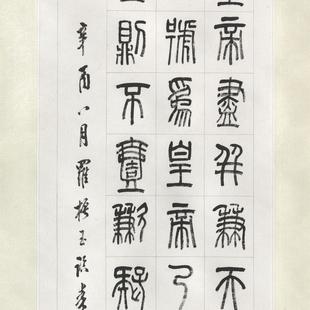 帝盡并兼天
號為皇帝乃
則不壹歉疑
辛酉八月羅振玉臨秦